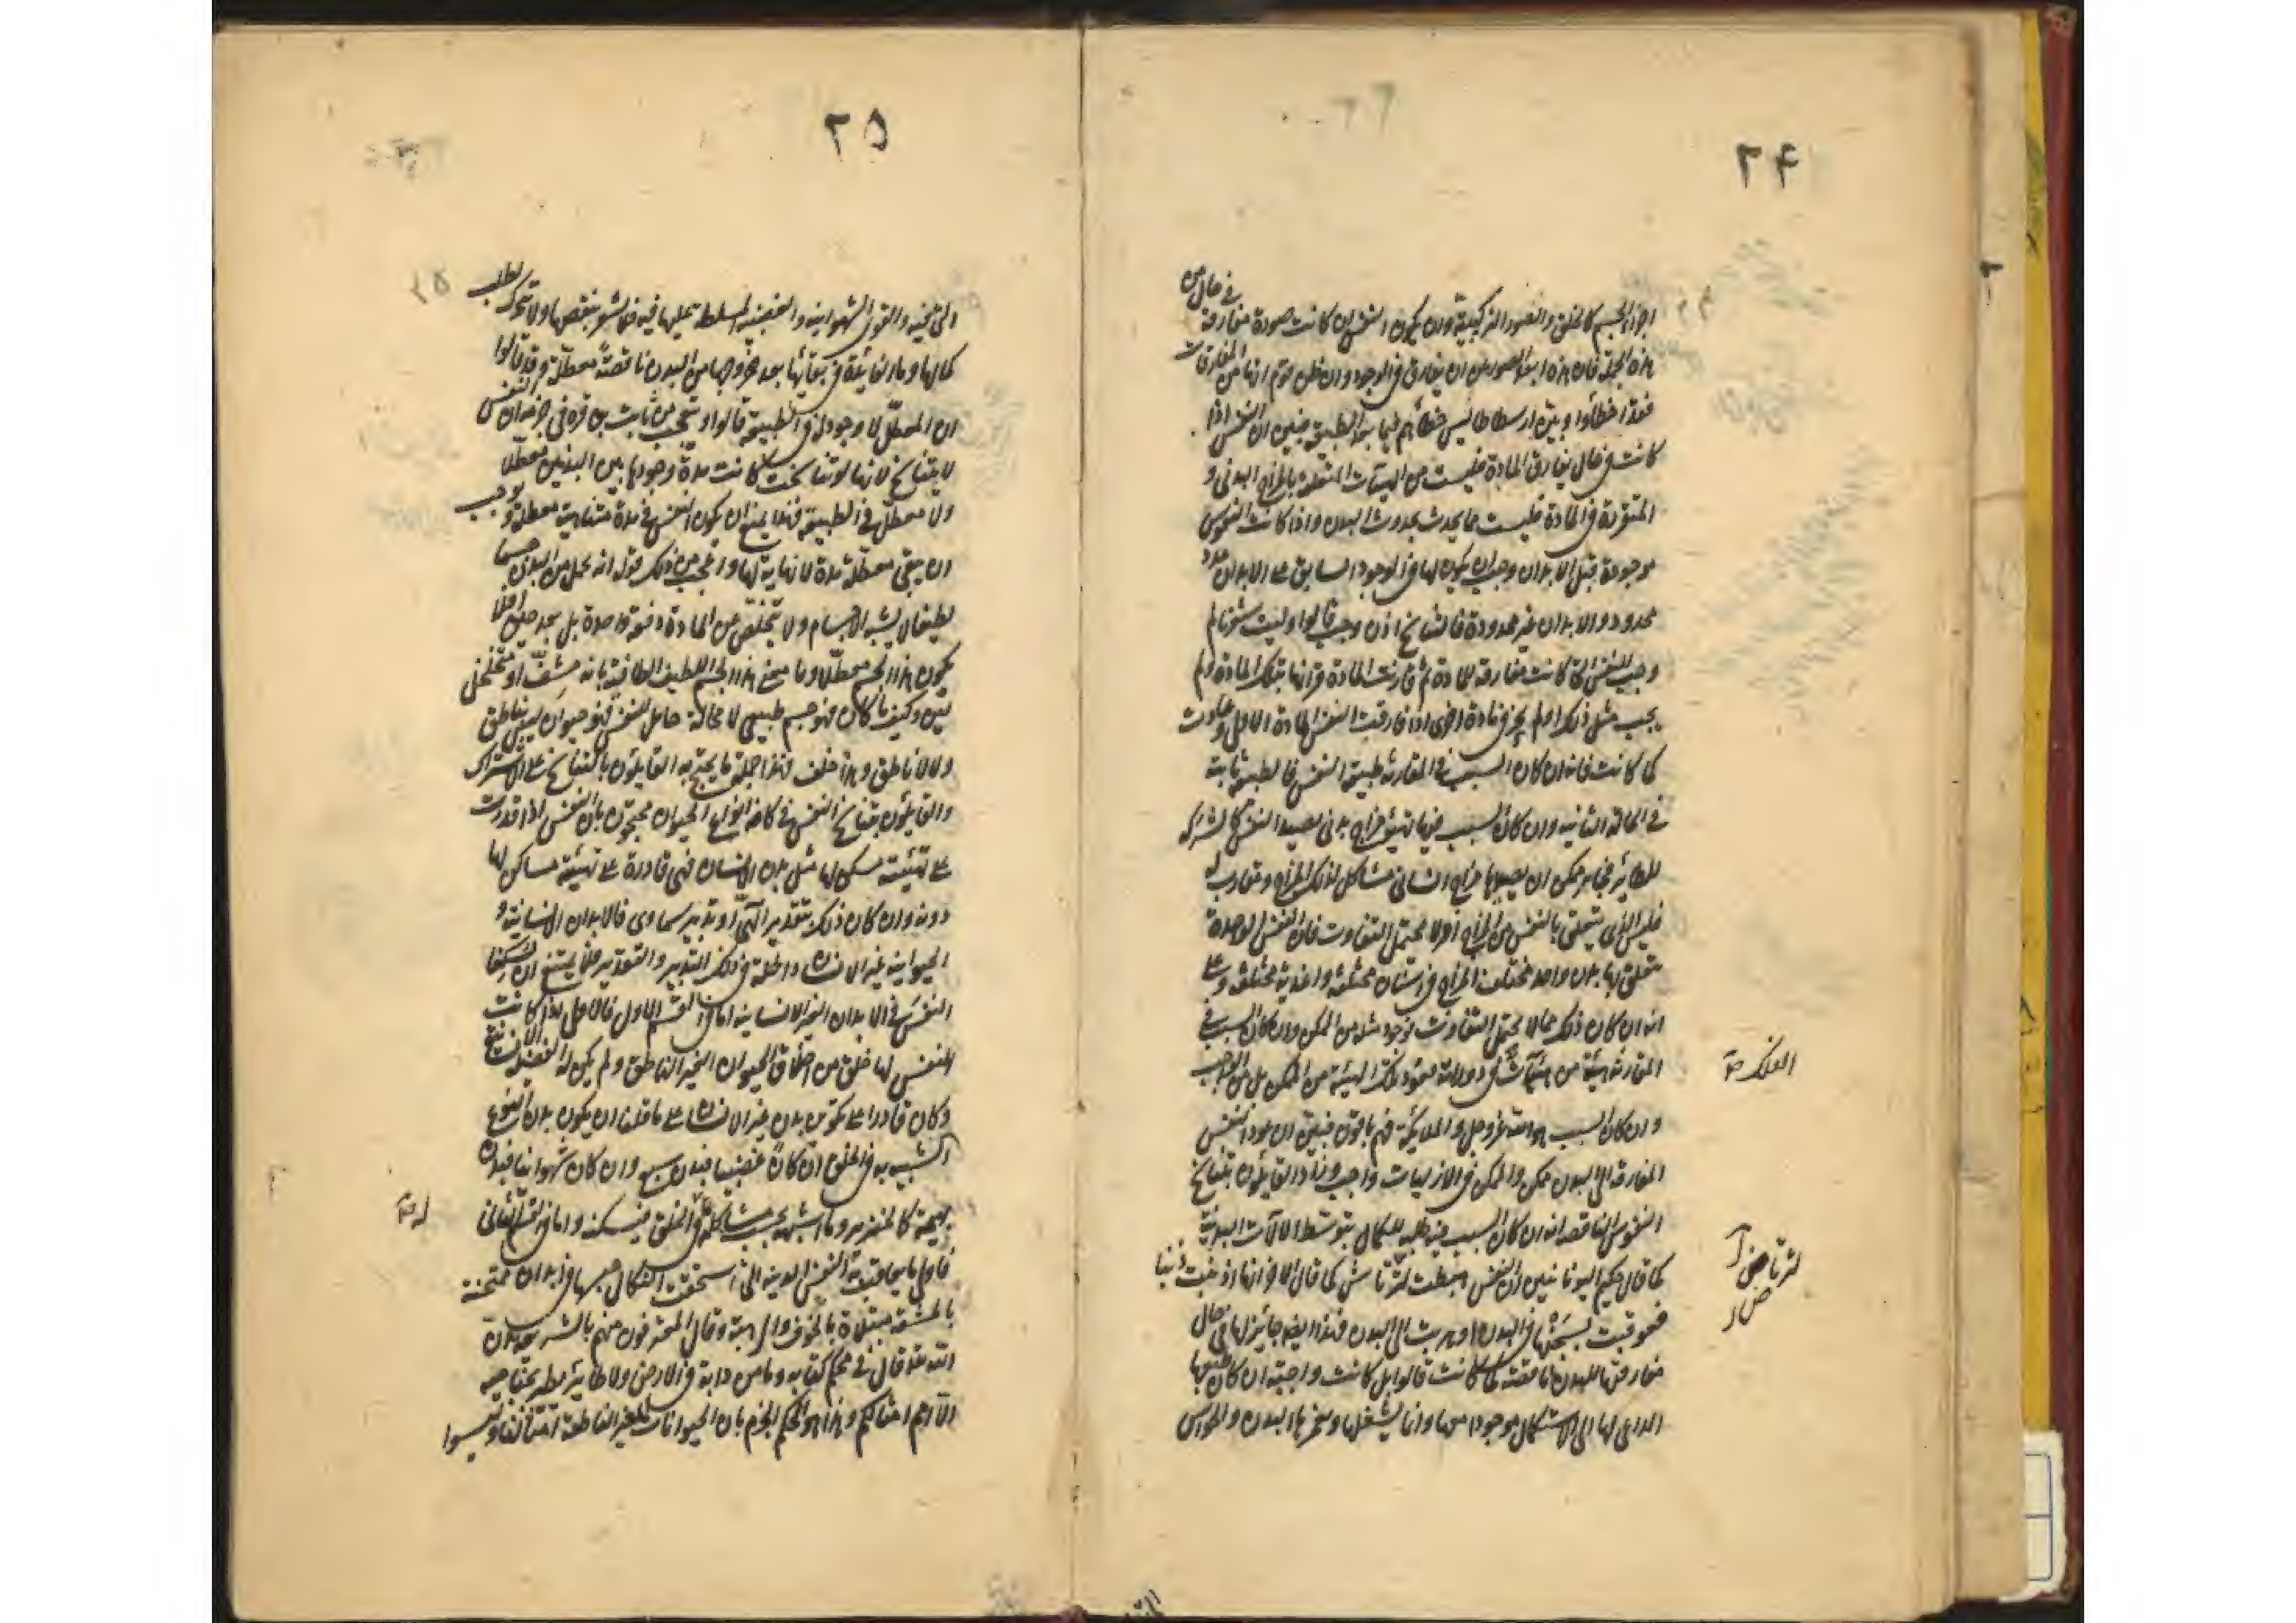 ٢٤
اجزاء الجسم كالخلق والصور التركيبية وان يكون النفس ان كانت صورة مفارقة في حال من
هذه الجملة فان هذه ابعد الصور من ان يفارق في الوجود وان ظن قوم انها من المفارقات
فقد اخطأوا وبين ارسطاطاليس خطأهم فيما بعد الطبيعة فبين ان النفس اذا
كانت في حال يفارق المادة فليست من الهيآت المتعلقة بالمزاج البدني و
المتقررة في المادة فليست مما يحدث بحدوث البدن واذا كانت النفوس
موجودة قبل الابدان وجب ان يكون لها في الوجود السابق على الابدان عدد
محدود والابدان غير محدودة فالتناسخ اذن وجب قالوا وليت شعري لم
وجب للنفس التي كانت مفارقة للمادة ثم قارنت المادة قرانها بتلك المادة ولم
يجب مثل ذلك او لم يجز في مادة اخرى اذا فارقت النفس المادة الاولى وعادت
كما كانت فانه ان كان السبب في المقارنة طبيعة النفس فالطبيعة ثابتة
في الحالة الثانية وان كان السبب فيها تهيؤ مزاج بدني يصيد النفس كالشراك
للطائر فجائز ممكن ان يصيدها مزاج انساني مشاكل لذلك المزاج ومقارب له
فليس الذي يتعلق بالنفس من المزاج امرا لا يحتمل التفاوت فان النفس الواحدة
يتعلق بها بدن واحد مختلف المزاج في اسنان مختلفة واغذية مختلفة وعلى
انه ان كان ذلك مما لا يحتمل التفاوت فوجود مثله من الممكن وان كان السبب في
المقارنة هيئة من هيآت دورانه فعود تلك الهيئة من الممكن بل من الواجب
الفلك
وان كان السبب هو الله عز وجل والملائكة فهم باقون فبين ان عود النفس
المفارقة الى البدن ممكن والممكن في الازليات واجب وزاد القايلون بتناسخ
النفوس الناقصة انه ان كان السبب فيه طلبه للكمال بتوسط الآلات البدنية
كما قال حكيم اليونانيين ان النفس اهبطت لترتاش كما قال الآخر انها اذنبت ذنبا
لترتاض
فعوقبت بسجنها في البدن او هربت الى البدن فهذا ايضا جائز لها في حال
مفارقتها للبدن ناقصة كما كانت قالوا بل كانت واجبة ان كان
الداعي لها الى الاستكمال موجودا معها وانما يشغلها وسخرها البدن والحواس
٢٥
التي فيه والقوى الشهوانية والغضبية المسلطة عليها فيه فما تشعر بنقصها ولا تتحرك لطلب
كمالها وما الفائدة في بقائها بعد خروجها من البدن ناقصة معطلة وقد قالوا
ان المعطل لا وجود له في الطبيعة قالوا وتعجب من ثابت بن قرة في زعمه ان النفس
لا يتناسخ لانها لو تناسخت كانت مدة وجودها بين البدنين معطلا
ولا معطل في الطبيعة فهذا يمنع ان يكون النفس في مدة متناهية معطلة ويوجب
ان يبقى معطلة مدة لا نهاية لها واعجب من ذلك قوله انه يحمل من البدن جسما
لطيفا لا يشبه الاجسام ولا تتخلص من المادة دفعة واحدة بل بعد حين افلا
يكون هذا الجسم معطلا وما معنى هذا الجسم اللطيف الطافية بانه مشف او متخلخل
لين وكيف ما كان فهو جسم طبيعي لا محالة حامل للنفس فهو حيوان ليس بناطق
ولا لا ناطق وهذا خلف فهذا جملة ما يحتج به القايلون بالتناسخ على الاشتراك
والقايلون بتناسخ النفس في كافة انواع الحيوان محتجون بان النفس اذا قدرت
على تهيئة مسكن لها مثل بدن الانسان فهي قادرة على تهيئة مساكن لها
دونه وان كان ذلك بتقدير الهي او تدبير سماوي فالابدان الانسانية و
الحيوانية غير الانسان داخلة في ذلك التدبير والتقدير فلا يمتنع ان يسكنها
النفس في الابدان الغير الانسانية اما في القسم الاول فالاول اذا كانت
النفس لها خلق من اخلاق الحيوان الغير الناطق ولم يكن له
وكان قادرا على تكوين بدن غير الانسان على ما قلنا ان يكون بدن النوع
الشبيه به في الخلق ان كان غضبيا فبدن سبع وان كان شهوانيا فبدن
بهيمة كالخنزير وما اشبهه يجب مشاكلة في الخلق فيسكنه واما في القسم الثاني
له
فاولى ما يعاقب به النفس الدنية التي استحقت النكال حبسها في ابدان ممتحنة
بالمشقة مبتلاة بالخوف والرهبة وقال المعترفون منهم بالشريعة ان
الله تعالى قال في محكم كتابه وما من دابة في الارض ولا طائر يطير بجناحيه
الا امم امثالكم وهذا هو الحكم الجزم بان الحيوانات الغير الناطقة امثالنا وليسوا